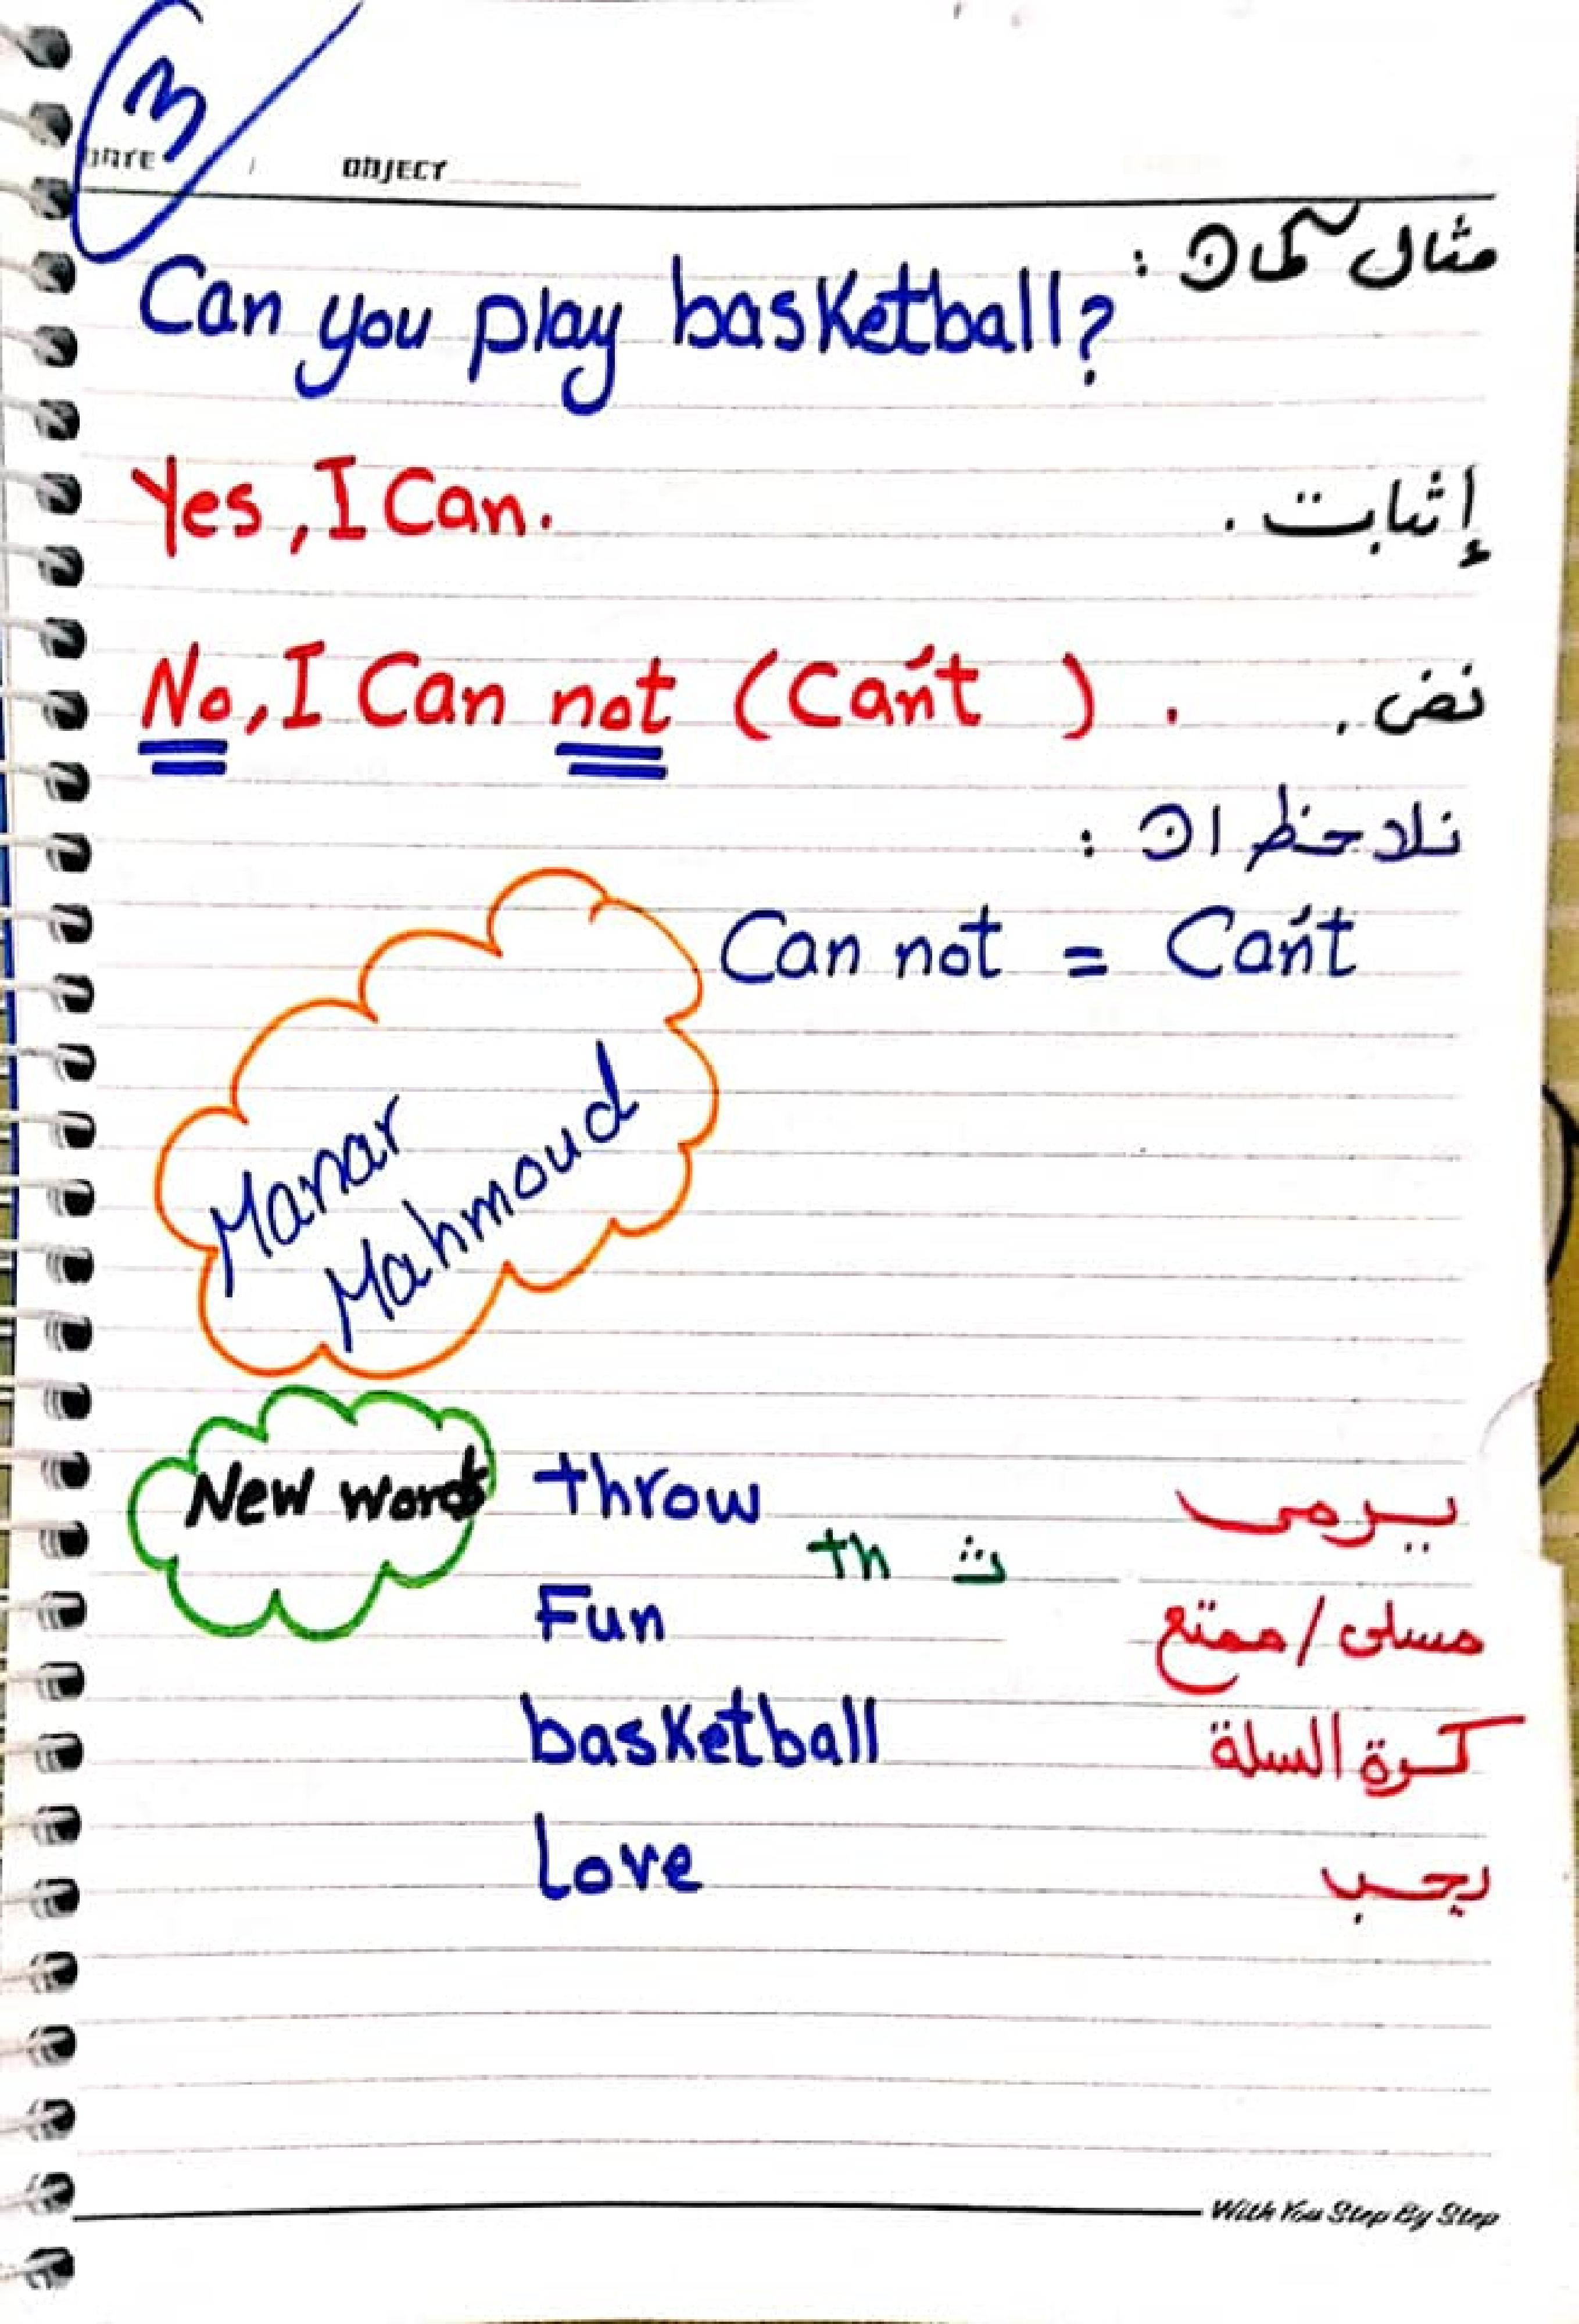 3
DATE / OBJECT
مثال كمان :
Can you play basketball?
Yes, I Can. إثبات .
No, I Can not (Can't ) . نفى .
نلاحظ ان :
Can not = Can't
Manar
Mahmoud
New words throw يرمى
th ث
Fun مسلى / ممتع
basketball كرة السلة
Love يحب
With You Step By Step